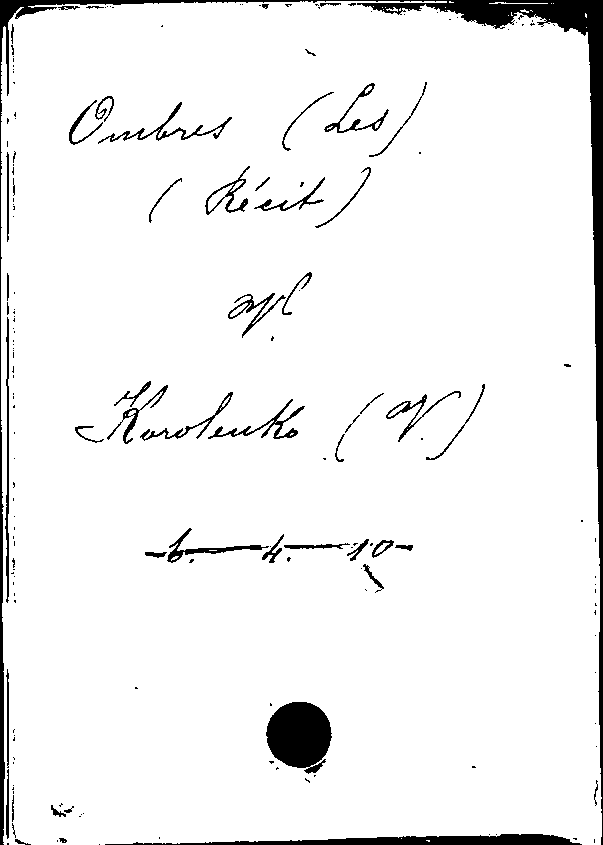 Ombres (Les)
(Récit)
Korolenko (V.)
6. 4. 10